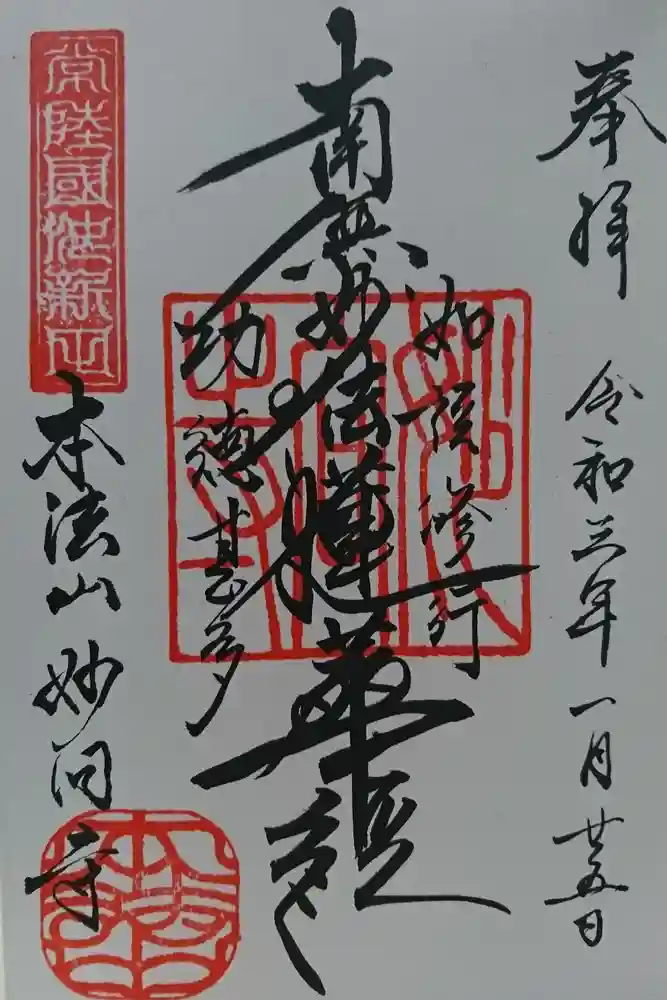 奉拝
令和三年一月廿五日
如説修行
南無妙法蓮華経
功徳甚多
常陸國
本法山妙同寺